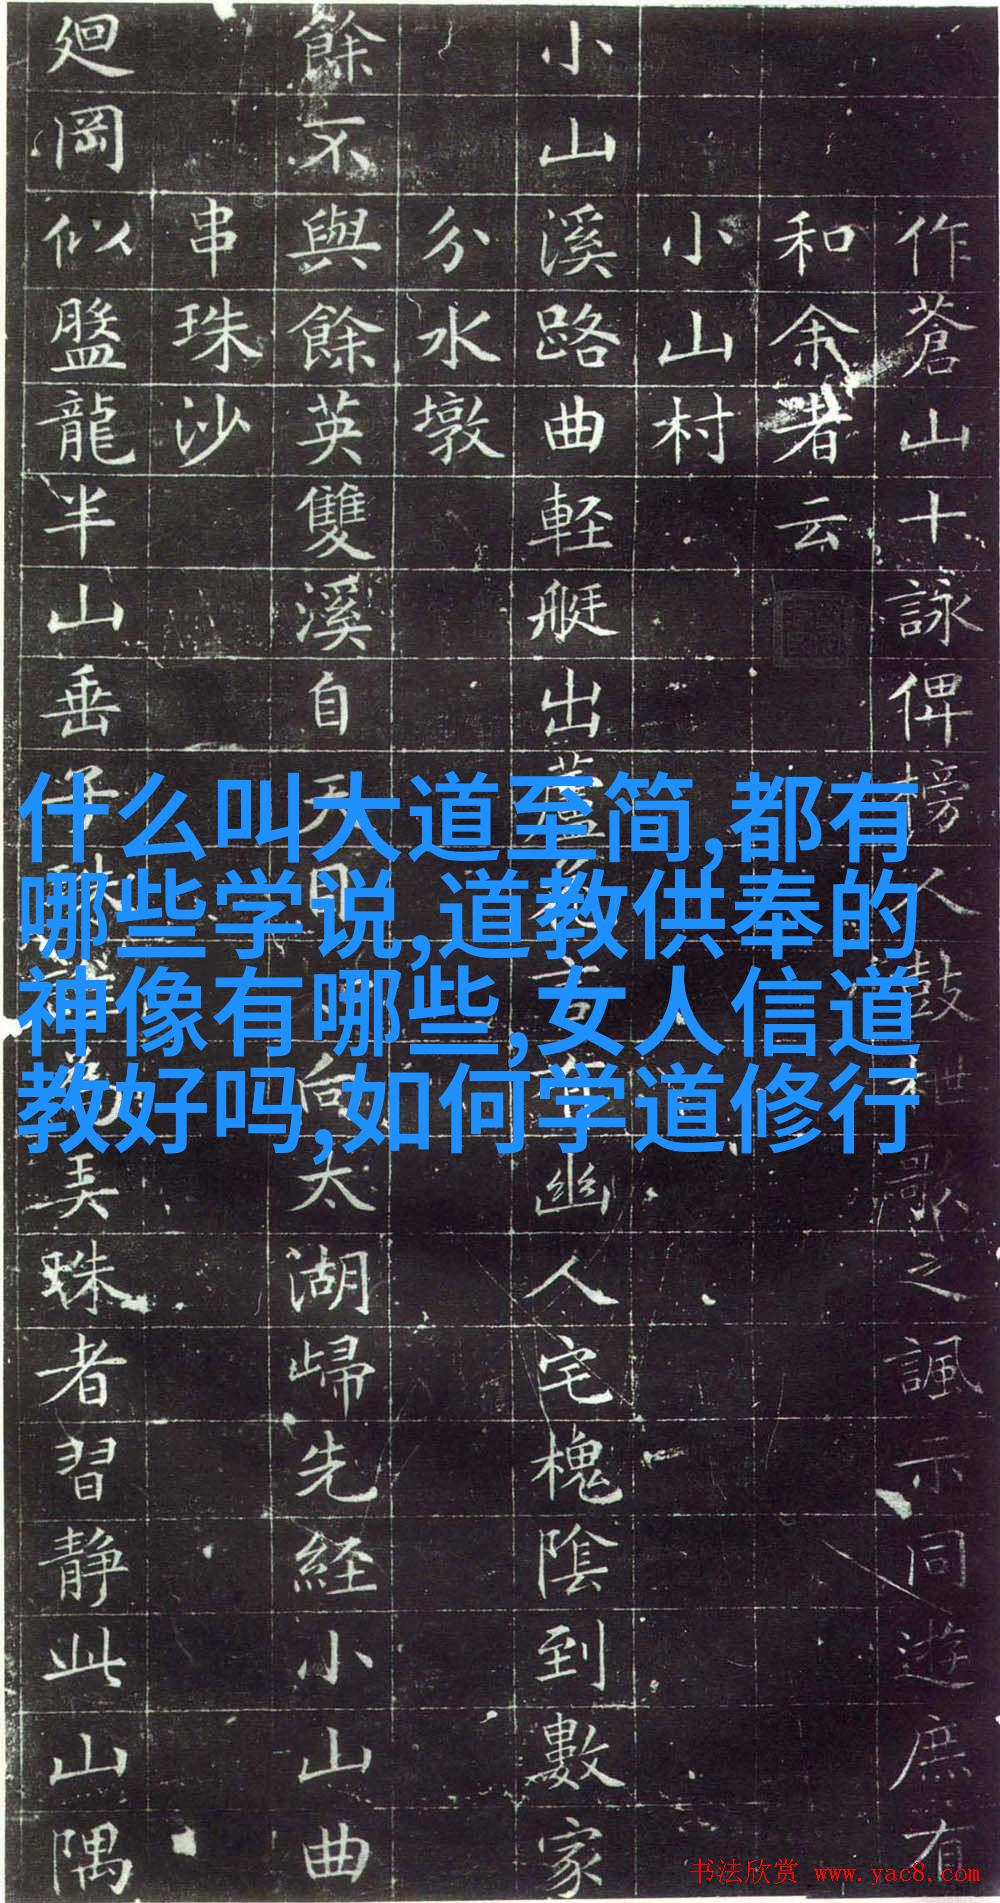 作蒼山十詠俾榜人鼓枻歌之諷示同遊庶有
和余者云
小山村
小山溪路曲軽艇出蘆言有幽人宅槐陰到數家
分水墩
餘不與餘英雙溪自天目向太湖帰先経小山曲
串珠沙
廻岡似盤龍半山垂子誰為弄珠者習静此山隅
什么叫大道至简,都有
哪些学说,道教供奉的
神像有哪些,女人信道
教好吗,如何学道修行
书法欣赏 www.yac8.com